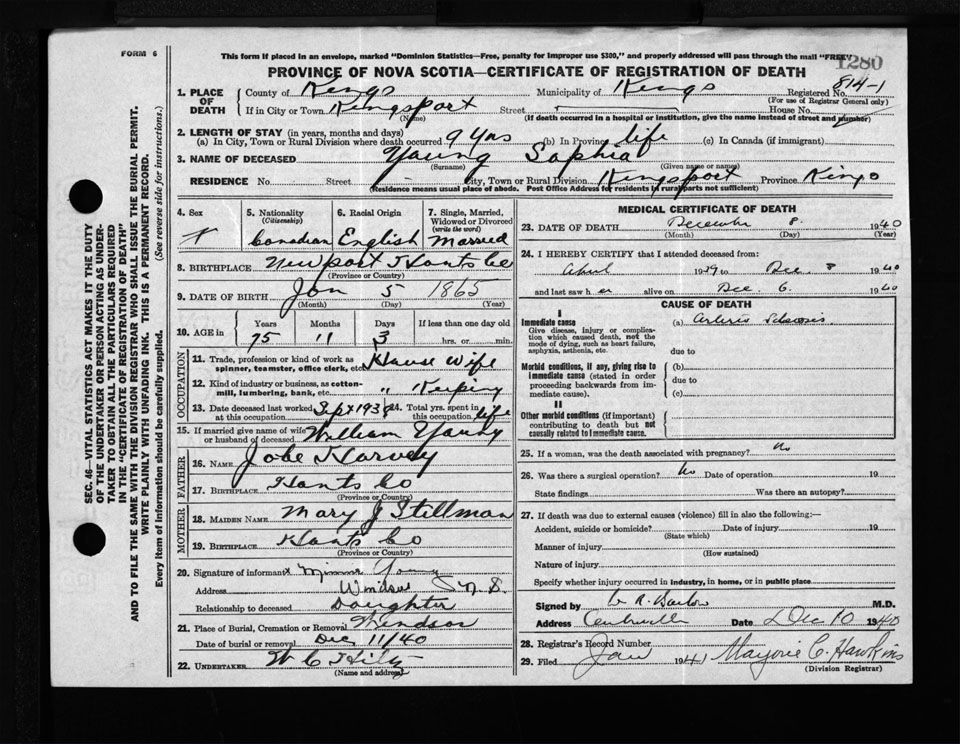 FORM 6
This form if placed in an envelope, marked "Dominion Statistics—Free, penalty for improper use $300," and properly addressed will pass through the mail "FREE"
1280
PROVINCE OF NOVA SCOTIA—CERTIFICATE OF REGISTRATION OF DEATH
814-1
1. PLACE OF DEATH County of Kings Municipality of Kings Registered No.
(For use of Registrar General only)
If in City or Town Kingsport Street House No.
(Name) (If death occurred in a hospital or institution, give the name instead of street and number)
2. LENGTH OF STAY (in years, months and days)
(a) In City, Town or Rural Division where death occurred 9 yrs (b) In Province life (c) In Canada (if immigrant)
3. NAME OF DECEASED Young Sophia
(Surname) (Given name or names)
RESIDENCE No. Street City, Town or Rural Division Kingsport Province Kings
(Residence means usual place of abode. Post Office Address for residents in rural parts not sufficient)
SEC. 46—VITAL STATISTICS ACT MAKES IT THE DUTY
OF THE UNDERTAKER OR PERSON ACTING AS UNDER-
TAKER TO OBTAIN ALL THE PARTICULARS REQUIRED
IN THE "CERTIFICATE OF REGISTRATION OF DEATH"
AND TO FILE THE SAME WITH THE DIVISION REGISTRAR WHO SHALL ISSUE THE BURIAL PERMIT.
WRITE PLAINLY WITH UNFADING INK. THIS IS A PERMANENT RECORD.
Every item of information should be carefully supplied. (See reverse side for instructions.)
4. Sex 5. Nationality (Citizenship) 6. Racial Origin 7. Single, Married, Widowed or Divorced (write the word)
F Canadian English Married
8. BIRTHPLACE Newport Hants Co
(Province or Country)
9. DATE OF BIRTH Jan 5 1865
(Month) (Day) (Year)
10. AGE in Years Months Days If less than one day old
75 11 3 hrs. or min.
OCCUPATION
11. Trade, profession or kind of work as spinner, teamster, office clerk, etc. House Wife
12. Kind of industry or business, as cotton-mill, lumbering, bank, etc. " Keeping
13. Date deceased last worked at this occupation Sept 1939 14. Total yrs. spent in this occupation life
15. If married give name of wife or husband of deceased William Young
FATHER
16. NAME Jobe Harvey
17. BIRTHPLACE Hants Co
(Province or Country)
MOTHER
18. MAIDEN NAME Mary J Stillman
19. BIRTHPLACE Hants Co
(Province or Country)
20. Signature of informant x Minnie Young
Address Windsor N.S.
Relationship to deceased Daughter
21. Place of Burial, Cremation or Removal Windsor
Date of burial or removal Dec 11/40
22. UNDERTAKER W C Hiltz
(Name and address)
MEDICAL CERTIFICATE OF DEATH
23. DATE OF DEATH December 8 1940
(Month) (Day) (Year)
24. I HEREBY CERTIFY that I attended deceased from:
April 1939 to Dec. 8 1940
and last saw her alive on Dec. 6. 1940
CAUSE OF DEATH
I
Immediate cause (a) Arterio Sclerosis
Give disease, injury or complication which caused death, not the mode of dying, such as heart failure, asphyxia, asthenia, etc.
due to
Morbid conditions, if any, giving rise to immediate cause (stated in order proceeding backwards from immediate cause). (b)
due to
(c)
II
Other morbid conditions (if important) contributing to death but not causally related to immediate cause.
25. If a woman, was the death associated with pregnancy? No
26. Was there a surgical operation? No Date of operation 19
State findings Was there an autopsy?
27. If death was due to external causes (violence) fill in also the following:—
Accident, suicide or homicide? Date of injury 19
(State which)
Manner of injury
(How sustained)
Nature of injury
Specify whether injury occurred in industry, in home, or in public place
Signed by M.D.
Address Centreville Date Dec 10 1940
28. Registrar's Record Number
29. Filed Jan 1941 Marjorie C. Hawkins
(Division Registrar)